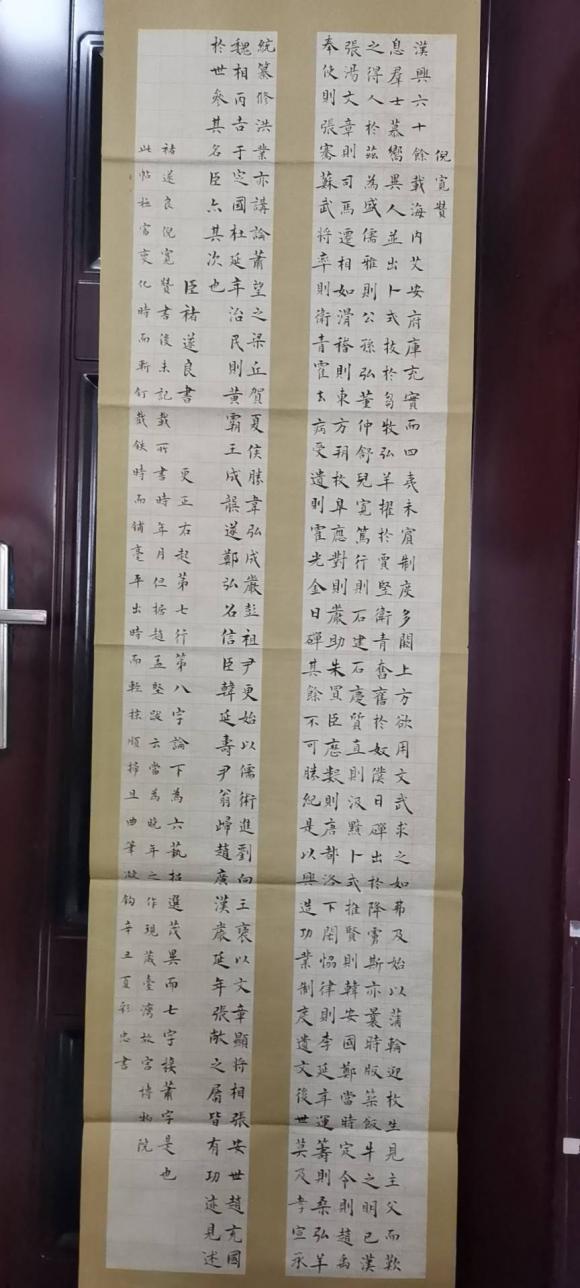 倪寬贊
漢興六十餘載海内艾安府庫充實而四夷未賓制度多闕上方欲用文武求之如弗及始以蒲輪迎枚生見主父而歎
息羣士慕嚮異人並出卜式技於芻牧弘羊擢於賈堅衛青奮舊於奴僕日磾出於降虜斯亦曩時版築飯牛之明已漢
之得人於茲為盛儒雅則公孫弘董仲舒兒寬篤行則石建石慶質直則汲黯卜式推賢則韓安國鄭當時定令則趙禹
張湯文章則司馬遷相如滑稽則東方朔枚皋應對則嚴助朱買臣歷數則唐都洛下閎恊律則李延年運籌則桑弘羊
奉使則張騫蘇武將率則衛青霍去病受遺則霍光金日磾其餘不可勝紀是以興造功業制度遺文後世莫及孝宣承
統纂修洪業亦講論蕭望之梁丘賀夏侯勝韋弘成嚴彭祖尹更始以儒術進劉向王襃以文章顯將相張安世趙充國
魏相丙吉于定國杜延年治民則黃霸王成龔遂鄭弘名信臣韓延壽尹翁歸趙廣漢嚴延年張敞之屬皆有功迹見述
於世參其名臣亦其次也
臣褚遂良書
更正右起第七行第八字論下為六藝招選茂異而七字接蕭字是也
褚遂良倪寬贊書後未記載所書時年月但據趙孟堅跋云當為晚年之作現藏臺灣故宮博物院
此帖極富變化時而斬釘截鐵時而鋪毫平出時而輕捺順掃且曲筆凝鈎辛丑夏彩忠書